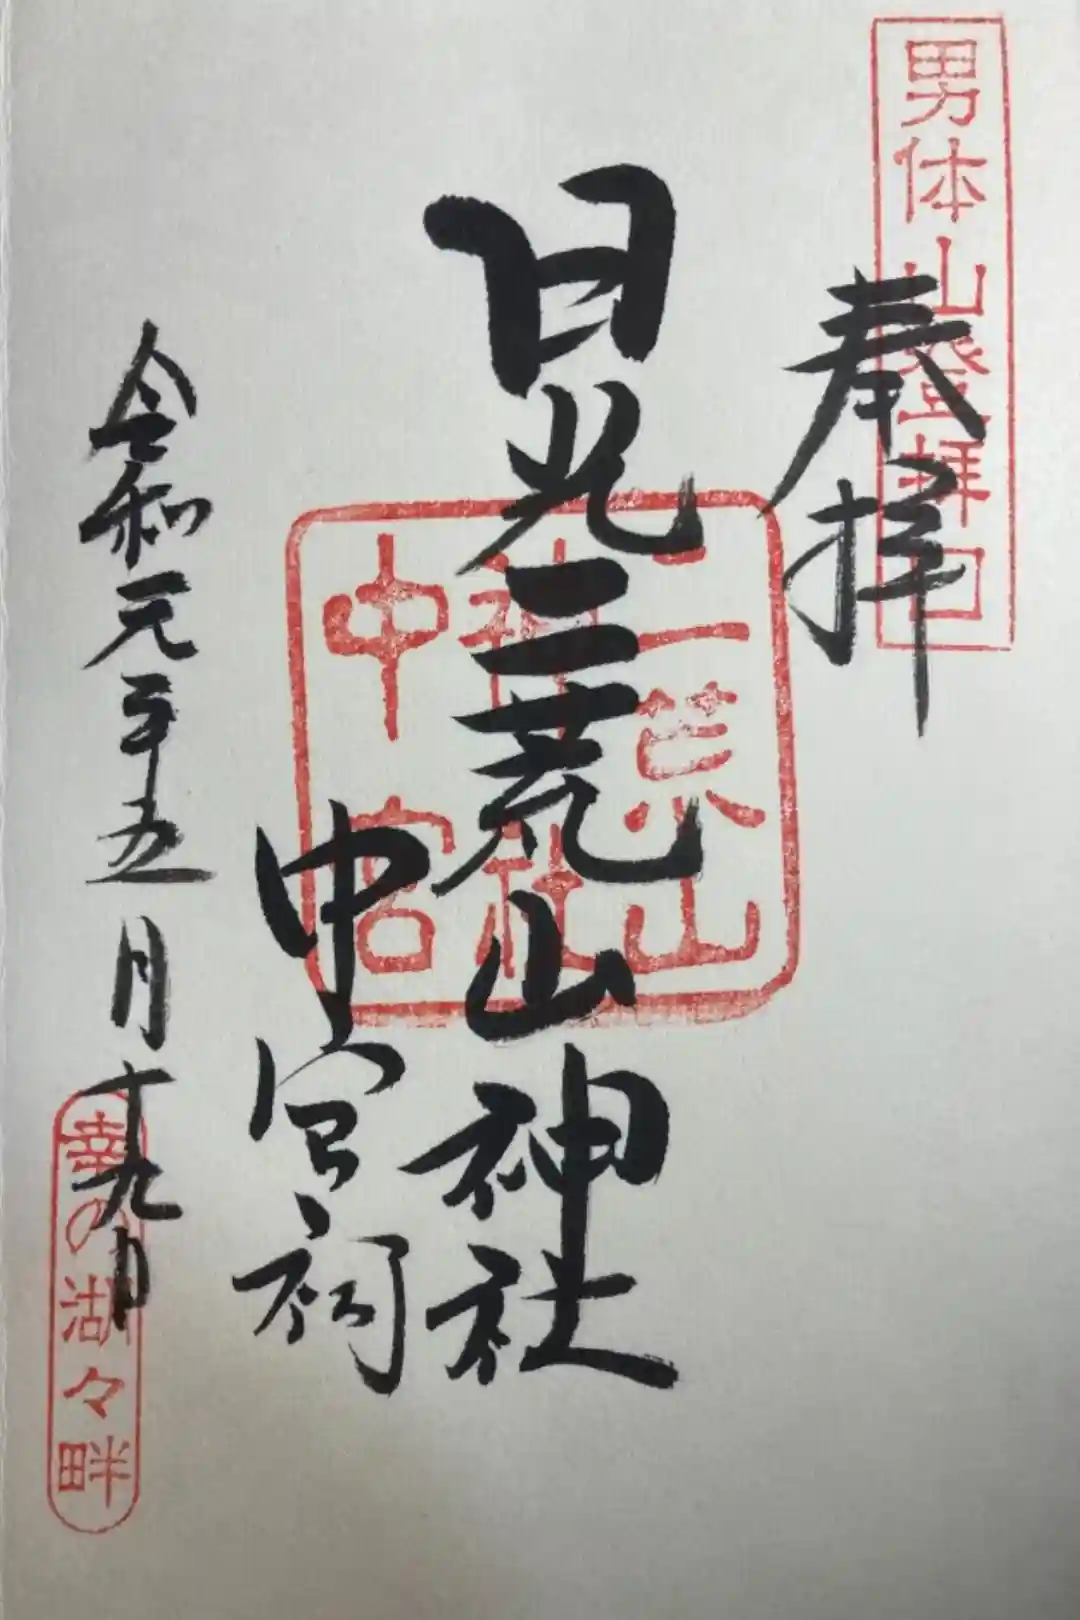 男体山登拝口
奉拝
日光二荒山神社
二荒山
神社
中宮
中宮祠
令和元年五月十九日
幸の湖々畔